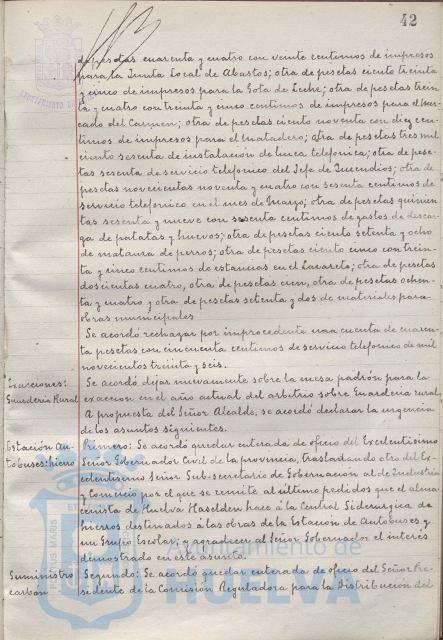 42
de pesetas cuarenta y cuatro con veinte centimos de impresos
para la Junta Local de Abastos; otra de pesetas ciento treinta
y cinco de impresos para la Gota de Leche; otra de pesetas trein
ta y cuatro con treinta y cinco centimos de impresos para el Mer-
cado del Carmen; otra de pesetas ciento noventa con diez cen-
timos de impresos para el Matadero; otra de pesetas tres mil
ciento sesenta de instalación de linea telefonica; otra de pese-
tas sesenta de servicio telefonico del Jefe de Incendios; otra de
pesetas novecientas noventa y cuatro con sesenta centimos de
servicio telefonico en el mes de Marzo; otra de pesetas quinien
tas sesenta y nueve con sesenta centimos de gastos de descar-
ga de patatas y huevos; otra de pesetas ciento setenta y ocho
de matanza de perros; otra de pesetas ciento cinco con trein-
ta y cinco centimos de estancias en el Lazareto; otra de pesetas
doscientas cuatro, otra de pesetas cien, otra de pesetas ochen-
ta y cuatro y otra de pesetas setenta y dos de materiales para
obras municipales
Se acordó rechazar por improcedente una cuenta de cuaren-
ta pesetas con cincuenta centimos de servicio telefonico de mil
novecientos treinta y seis.
Exacciones:
Guardería Rural
Se acordó dejar nuevamente sobre la mesa padrón para la
exacción en el año actual del arbitrio sobre Guardería rural
A propuesta del Señor Alcalde, se acordó declarar la urgencia
de los asuntos siguientes.
Estación Au-
tobuses: hierro
Primero: Se acordó quedar enterada de oficio del Excelentisimo
Señor Gobernador Civil de la provincia, trasladando otro del Ex-
celentisimo Señor Sub-secretario de Gobernación al de Industria
y Comercio por el que se remite al último pedidos que el alma-
cenista de Huelva Haselden hace a la Central Siderurgica de
hierros destinados á las obras de la Estación de Autobuses y
un Grupo Escolar; y agradecer al Señor Gobernador el interes
demostrado en este asunto.
Suministro
carbón
Segundo: Se acordó quedar enterada de oficio del Señor Pre-
sidente de la Comisión Reguladora para la Distribución del
Ayuntamiento de
HUELVA